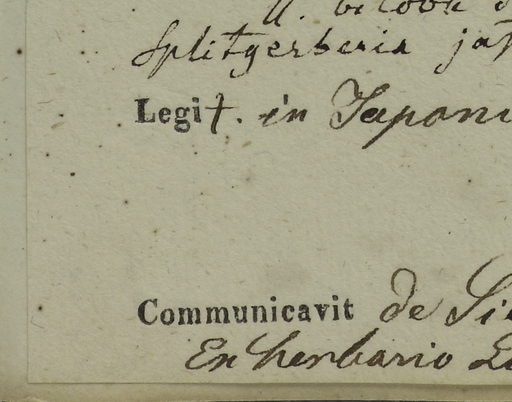 Splitgerberia jap
Legit. in Japoni
Communicavit de Si
En herbario